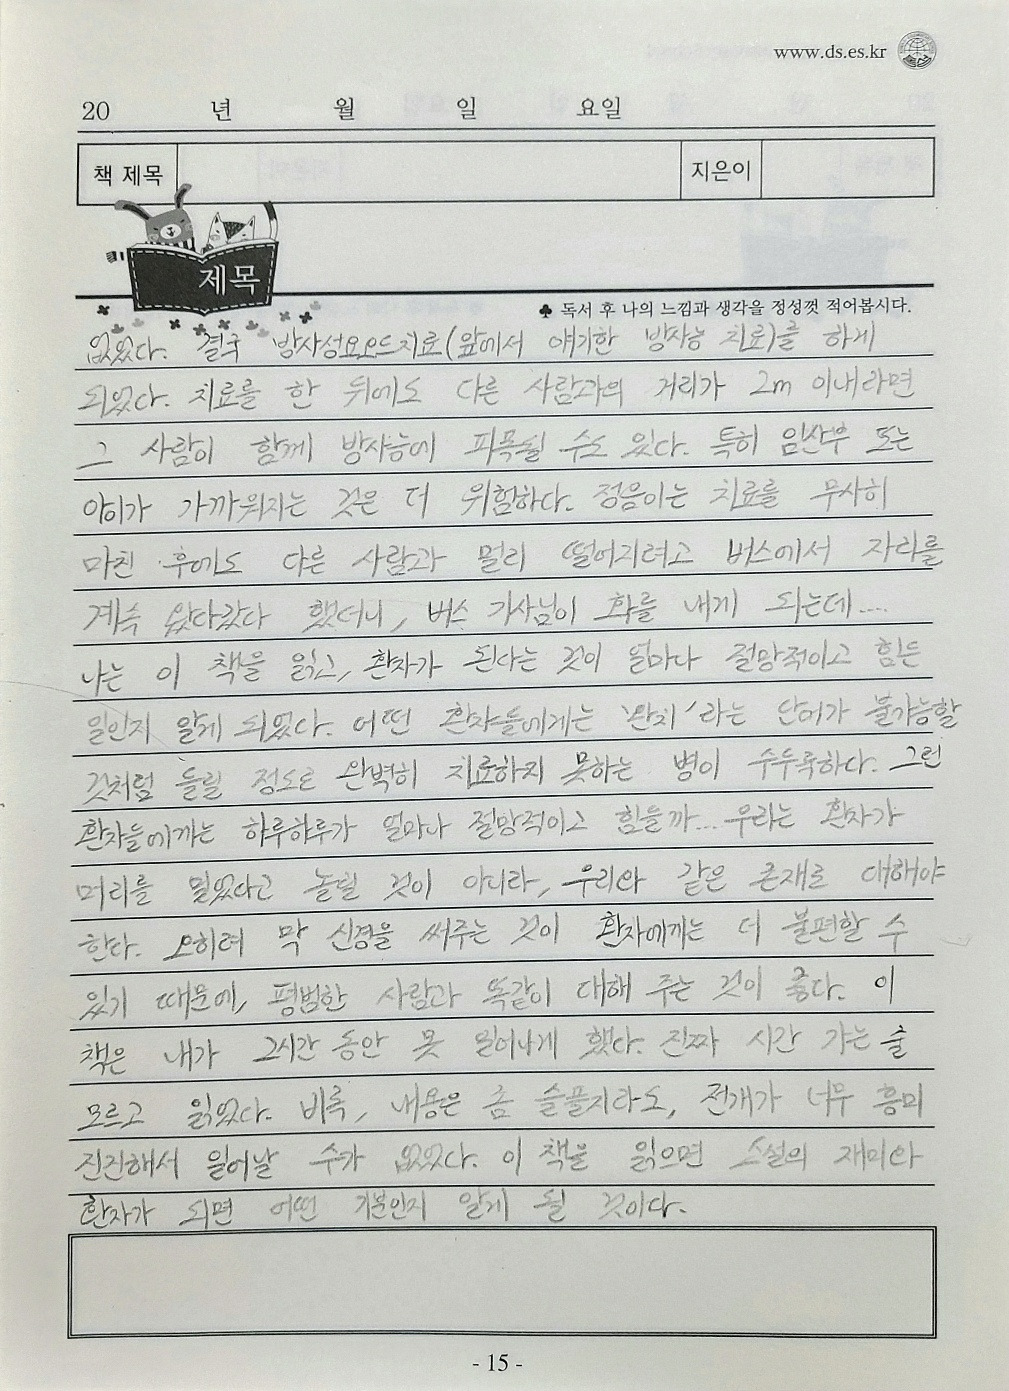 www.ds.es.kr
20 년 월 일 요일
책 제목 지은이
제목
♣ 독서 후 나의 느낌과 생각을 정성껏 적어봅시다.
없었다. 결국 방사성요오드치료(앞에서 얘기한 방사능 치료)를 하게
되었다. 치료를 한 뒤에도 다른 사람과의 거리가 2m 이내라면
그 사람이 함께 방사능에 피폭될 수도 있다. 특히 임산부 또는
아이가 가까워지는 것은 더 위험하다. 정음이는 치료를 무사히
마친 후에도 다른 사람과 멀리 떨어지려고 버스에서 자리를
계속 왔다갔다 했더니, 버스 기사님이 화를 내게 되는데....
나는 이 책을 읽고, 환자가 된다는 것이 얼마나 절망적이고 힘든
일인지 알게 되었다. 어떤 환자들에게는 '완치'라는 단어가 불가능할
것처럼 들릴 정도로 완벽히 치료하지 못하는 병이 수두룩하다. 그런
환자들에게는 하루하루가 얼마나 절망적이고 힘들까... 우리는 환자가
머리를 밀었다고 놀릴 것이 아니라, 우리와 같은 존재로 대해야
한다. 오히려 막 신경을 써주는 것이 환자에게는 더 불편할 수
있기 때문에, 평범한 사람과 똑같이 대해 주는 것이 좋다. 이
책은 내가 2시간 동안 못 일어나게 했다. 진짜 시간 가는 줄
모르고 읽었다. 비록, 내용은 좀 슬플지라도, 전개가 너무 흥미
진진해서 일어날 수가 없었다. 이 책을 읽으면 소설의 재미와
환자가 되면 어떤 기분인지 알게 될 것이다.
- 15 -